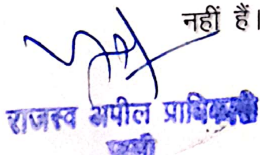 नहीं हैं।
राजस्व अपील प्राधिकारी